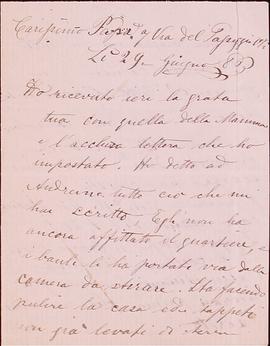 Carissimo
Via del
Li 29 Giugno 83
Ho ricevuto ieri la grata
tua con quella della Mamma
e l'acclusa lettera che ho
impostato. Ho detto ad
tutto ciò che mi
hai scritto. Egli non ha
ancora affittato il quartiere, e
i bauli li ha portati via dalla
camera da stirare. Sta facendo
pulire la casa ed i tappeti
son già levati di